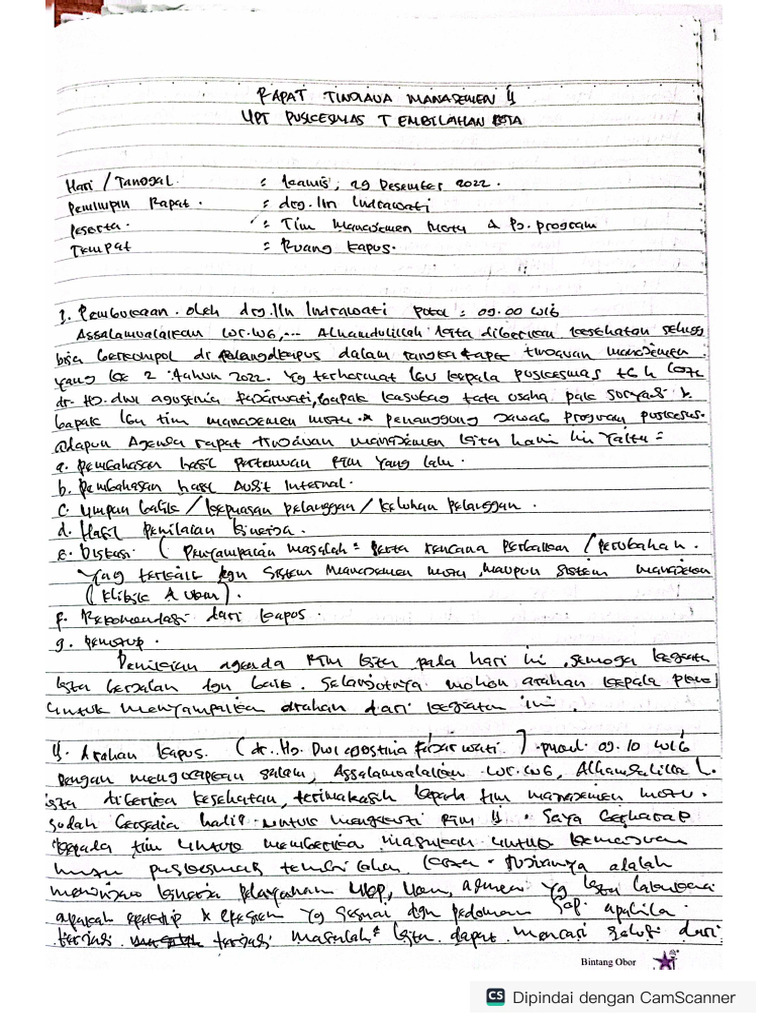 RAPAT TINJAUA MANAJEMEN II
UPT PUSKESMAS TEMBILAHAN KOTA
Hari / Tanggal : Kamis, 29 Desember 2022.
Pemimpin Rapat. : drg. Iin Indrawati
Peserta. : Tim Manajemen Mutu & Pj. program
Tempat : Ruang Kapus.
I. Pembukaan. oleh drg. Iin Indrawati Pukul : 09.00 WIB
Assalamualaikum Wr. Wb, ... Alhamdulillah kita diberikan kesehatan
bisa berkumpul di dalam rangka rapat tinjauan manajemen
yang ke 2 tahun 2022. Yg terhormat Ibu kepala puskesmas
dr. Hj. dwi agustina fajarwati, bapak kasubag tata usaha pak suryadi
bapak Ibu tim manajemen mutu penanggung jawab program
adapun Agenda rapat tinjauan manajemen kita hari ini yaitu =
a. Pembahasan hasil pertemuan RTM yang lalu.
b. Pembahasan hasil Audit Internal.
c. Umpan balik / kepuasan pelanggan / keluhan pelanggan.
d. Hasil penilaian kinerja.
e. Diskusi. ( Penyampaian masalah² serta rencana perbaikan / perubahan.
Yang terkait dgn sistem manajemen mutu, maupun sistem
f. Rekomendasi dari kapus.
g. penutup.
Demikian agenda RTM kita pada hari ini, semoga kegiatan
kita berjalan dgn baik. Selanjutnya mohon arahan kepala
untuk menyampaikan arahan dari kegiatan ini.
II. Arahan kapus. ( dr. Hj. Dwi agustina fajarwati. ) pukul 09.10 WIB
Dengan mengucapkan salam, Assalamualaikum Wr. Wb,
kita diberikan kesehatan, terimakasih kepada tim manajemen mutu.
sudah bersedia hadir untuk mengikuti RTM II. Saya berharap
kepada tim untuk memberikan masukan untuk kemajuan
puskesmas tembilahan kota. adalah
meninjau kinerja pelayanan UKP, Ukm, admen yg kita
apakah efektif & efesien yg sesuai dgn pedoman sop. apabila
terjadi terjadi masalah² kita dapat mencari solusi dari
Bintang Obor
CS Dipindai dengan CamScanner